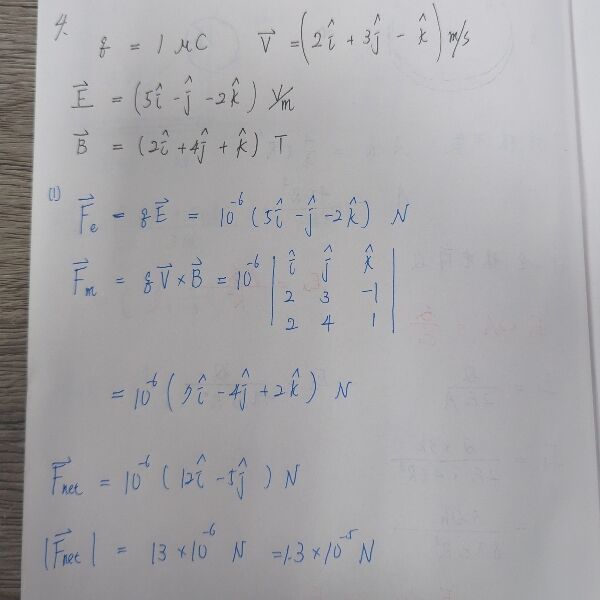 4.
q = 1 μC V⃗ = (2î + 3ĵ - k̂) m/s
E⃗ = (5î - ĵ - 2k̂) V/m
B⃗ = (2î + 4ĵ + k̂) T
(1)
F⃗e = qE⃗ = 10⁻⁶ (5î - ĵ - 2k̂) N
F⃗m = qV⃗ × B⃗ = 10⁻⁶ | î ĵ k̂ |
| 2 3 -1 |
| 2 4 1 |
= 10⁻⁶ (7î - 4ĵ + 2k̂) N
F⃗net = 10⁻⁶ (12î - 5ĵ) N
|F⃗net| = 13 × 10⁻⁶ N = 1.3 × 10⁻⁵ N